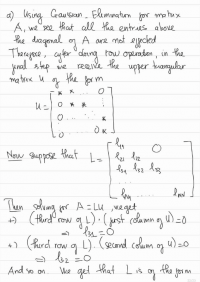 a) Using Gaussian-Elimination for matrix
A, we see that all the entries above
the diagonal of A are not effected
Therefore, after doing row operation, in the
final step we receive the upper triangular
matrix U of the form
U = [ * * 0
0 * *
0
0 0 * ]
Now suppose that L = [ l11 0
l21 l22
l31 l32 l33
lN1 lNN ]
Then solving for A = LU, we get
+) (third row of L) . (first column of U) = 0
=> l31 = 0
+) (third row of L) . (second column of U) = 0
=> l32 = 0
And so on. We get that L is of the form